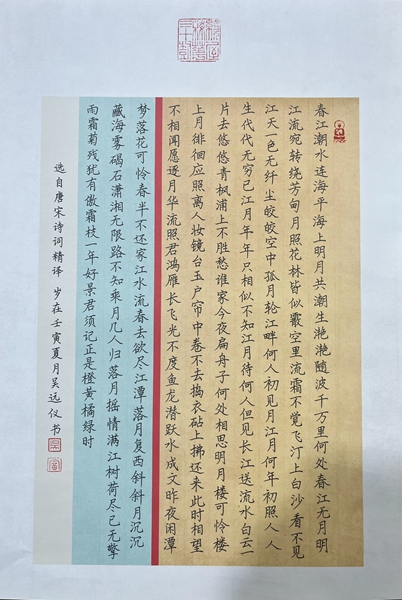 春江潮水连海平海上明月共潮生滟滟随波千万里何处春江无月明
江流宛转绕芳甸月照花林皆似霰空里流霜不觉飞汀上白沙看不见
江天一色无纤尘皎皎空中孤月轮江畔何人初见月江月何年初照人人
生代代无穷已江月年年只相似不知江月待何人但见长江送流水白云一
片去悠悠青枫浦上不胜愁谁家今夜扁舟子何处相思明月楼可怜楼
上月徘徊应照离人妆镜台玉户帘中卷不去捣衣砧上拂还来此时相望
不相闻愿逐月华流照君鸿雁长飞光不度鱼龙潜跃水成文昨夜闲潭
梦落花可怜春半不还家江水流春去欲尽江潭落月复西斜斜月沉沉
藏海雾碣石潇湘无限路不知乘月几人归落月摇情满江树荷尽已无擎
雨霜菊残犹有傲霜枝一年好景君须记正是橙黄橘绿时
选自唐宋诗词精译 岁在壬寅夏月吴远仪书